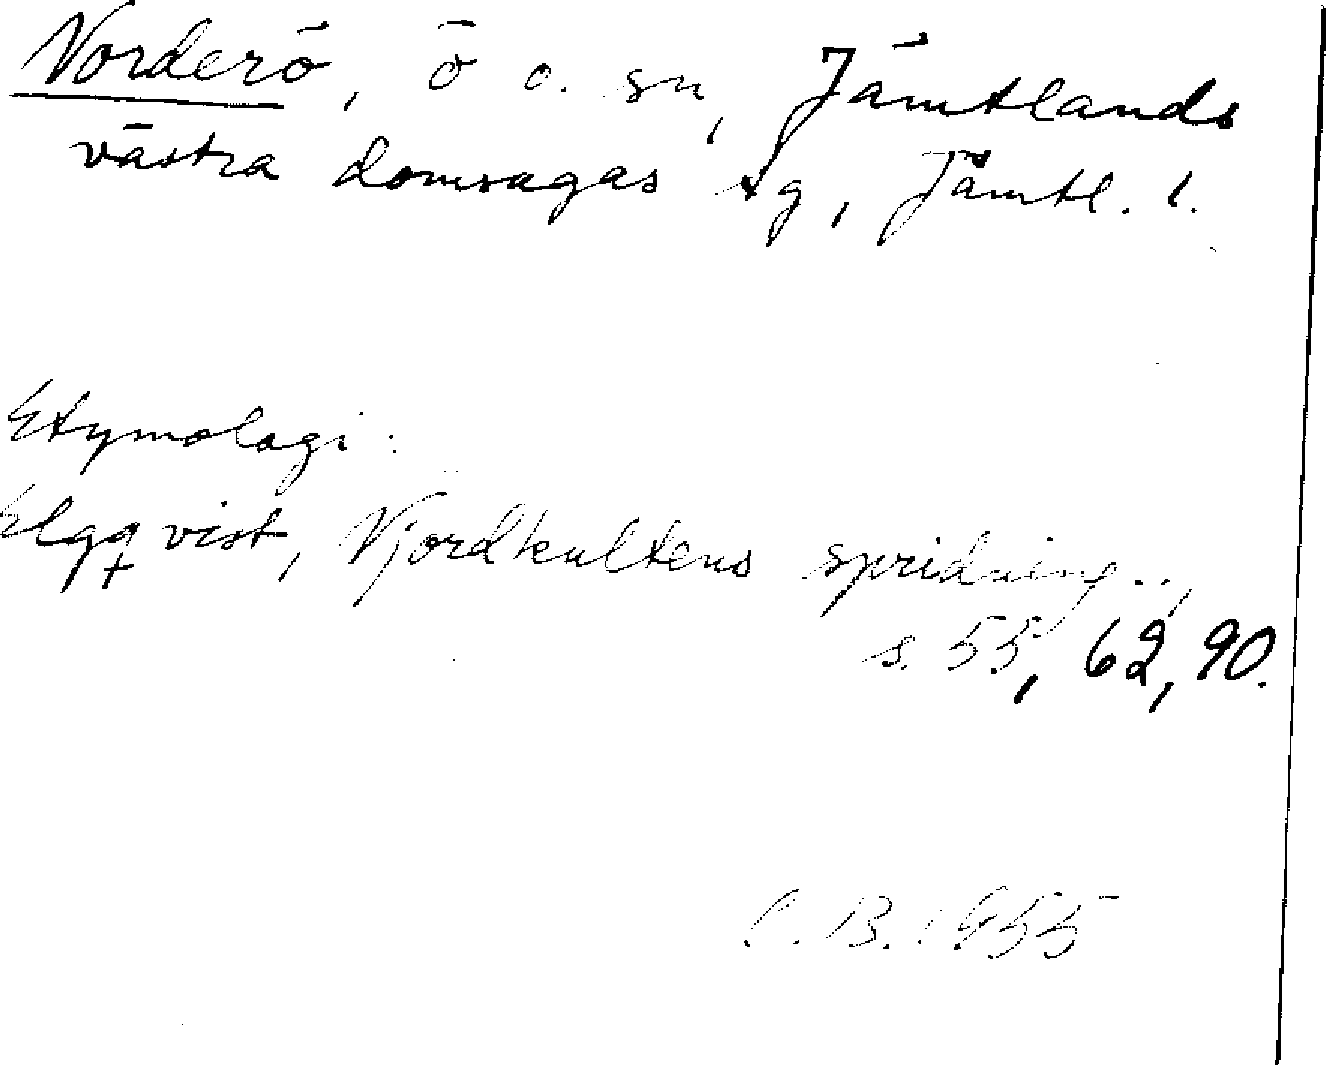 Norderö, ö o. sn, Jämtlands
västra domsagas tg, Jämtl. l.
Etymologi:
Elgqvist, Njordkultens spridning..,
s. 55, 62, 90.
C. B. 1955